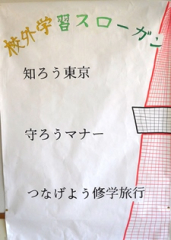 校外学習スローガン
知ろう東京
守ろうマナー
つなげよう修学旅行